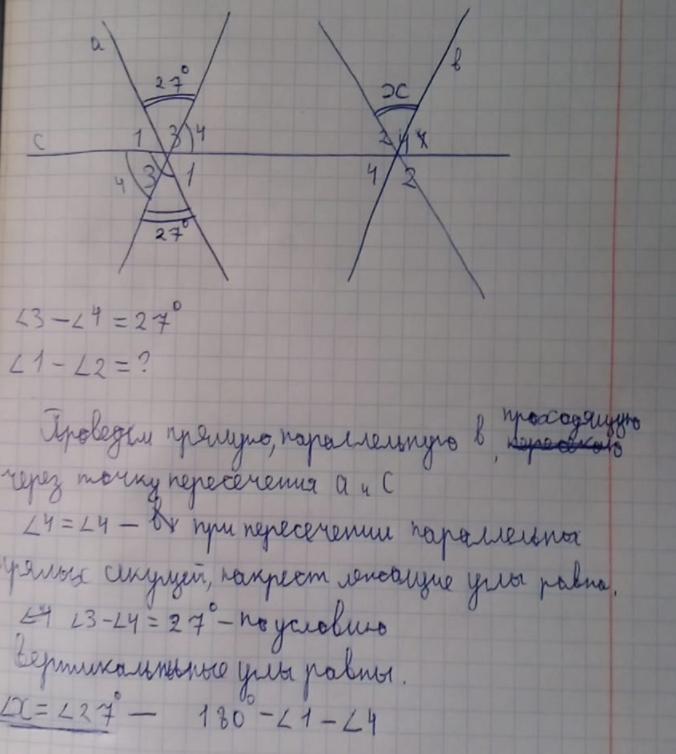 a 27° x в
c 1 3 4 2 4
4 3 1 4 2
27°
∠3 – ∠4 = 27°
∠1 – ∠2 = ?
Проведём прямую, параллельную в, проходящую
через точку пересечения а и с
∠4 = ∠4 – при пересечении параллельны
прямых секущей, накрест лежащие углы равны.
∠3 – ∠4 = 27° – по условию
Вертикальные углы равны.
∠x = ∠27° – 180° – ∠1 – ∠4